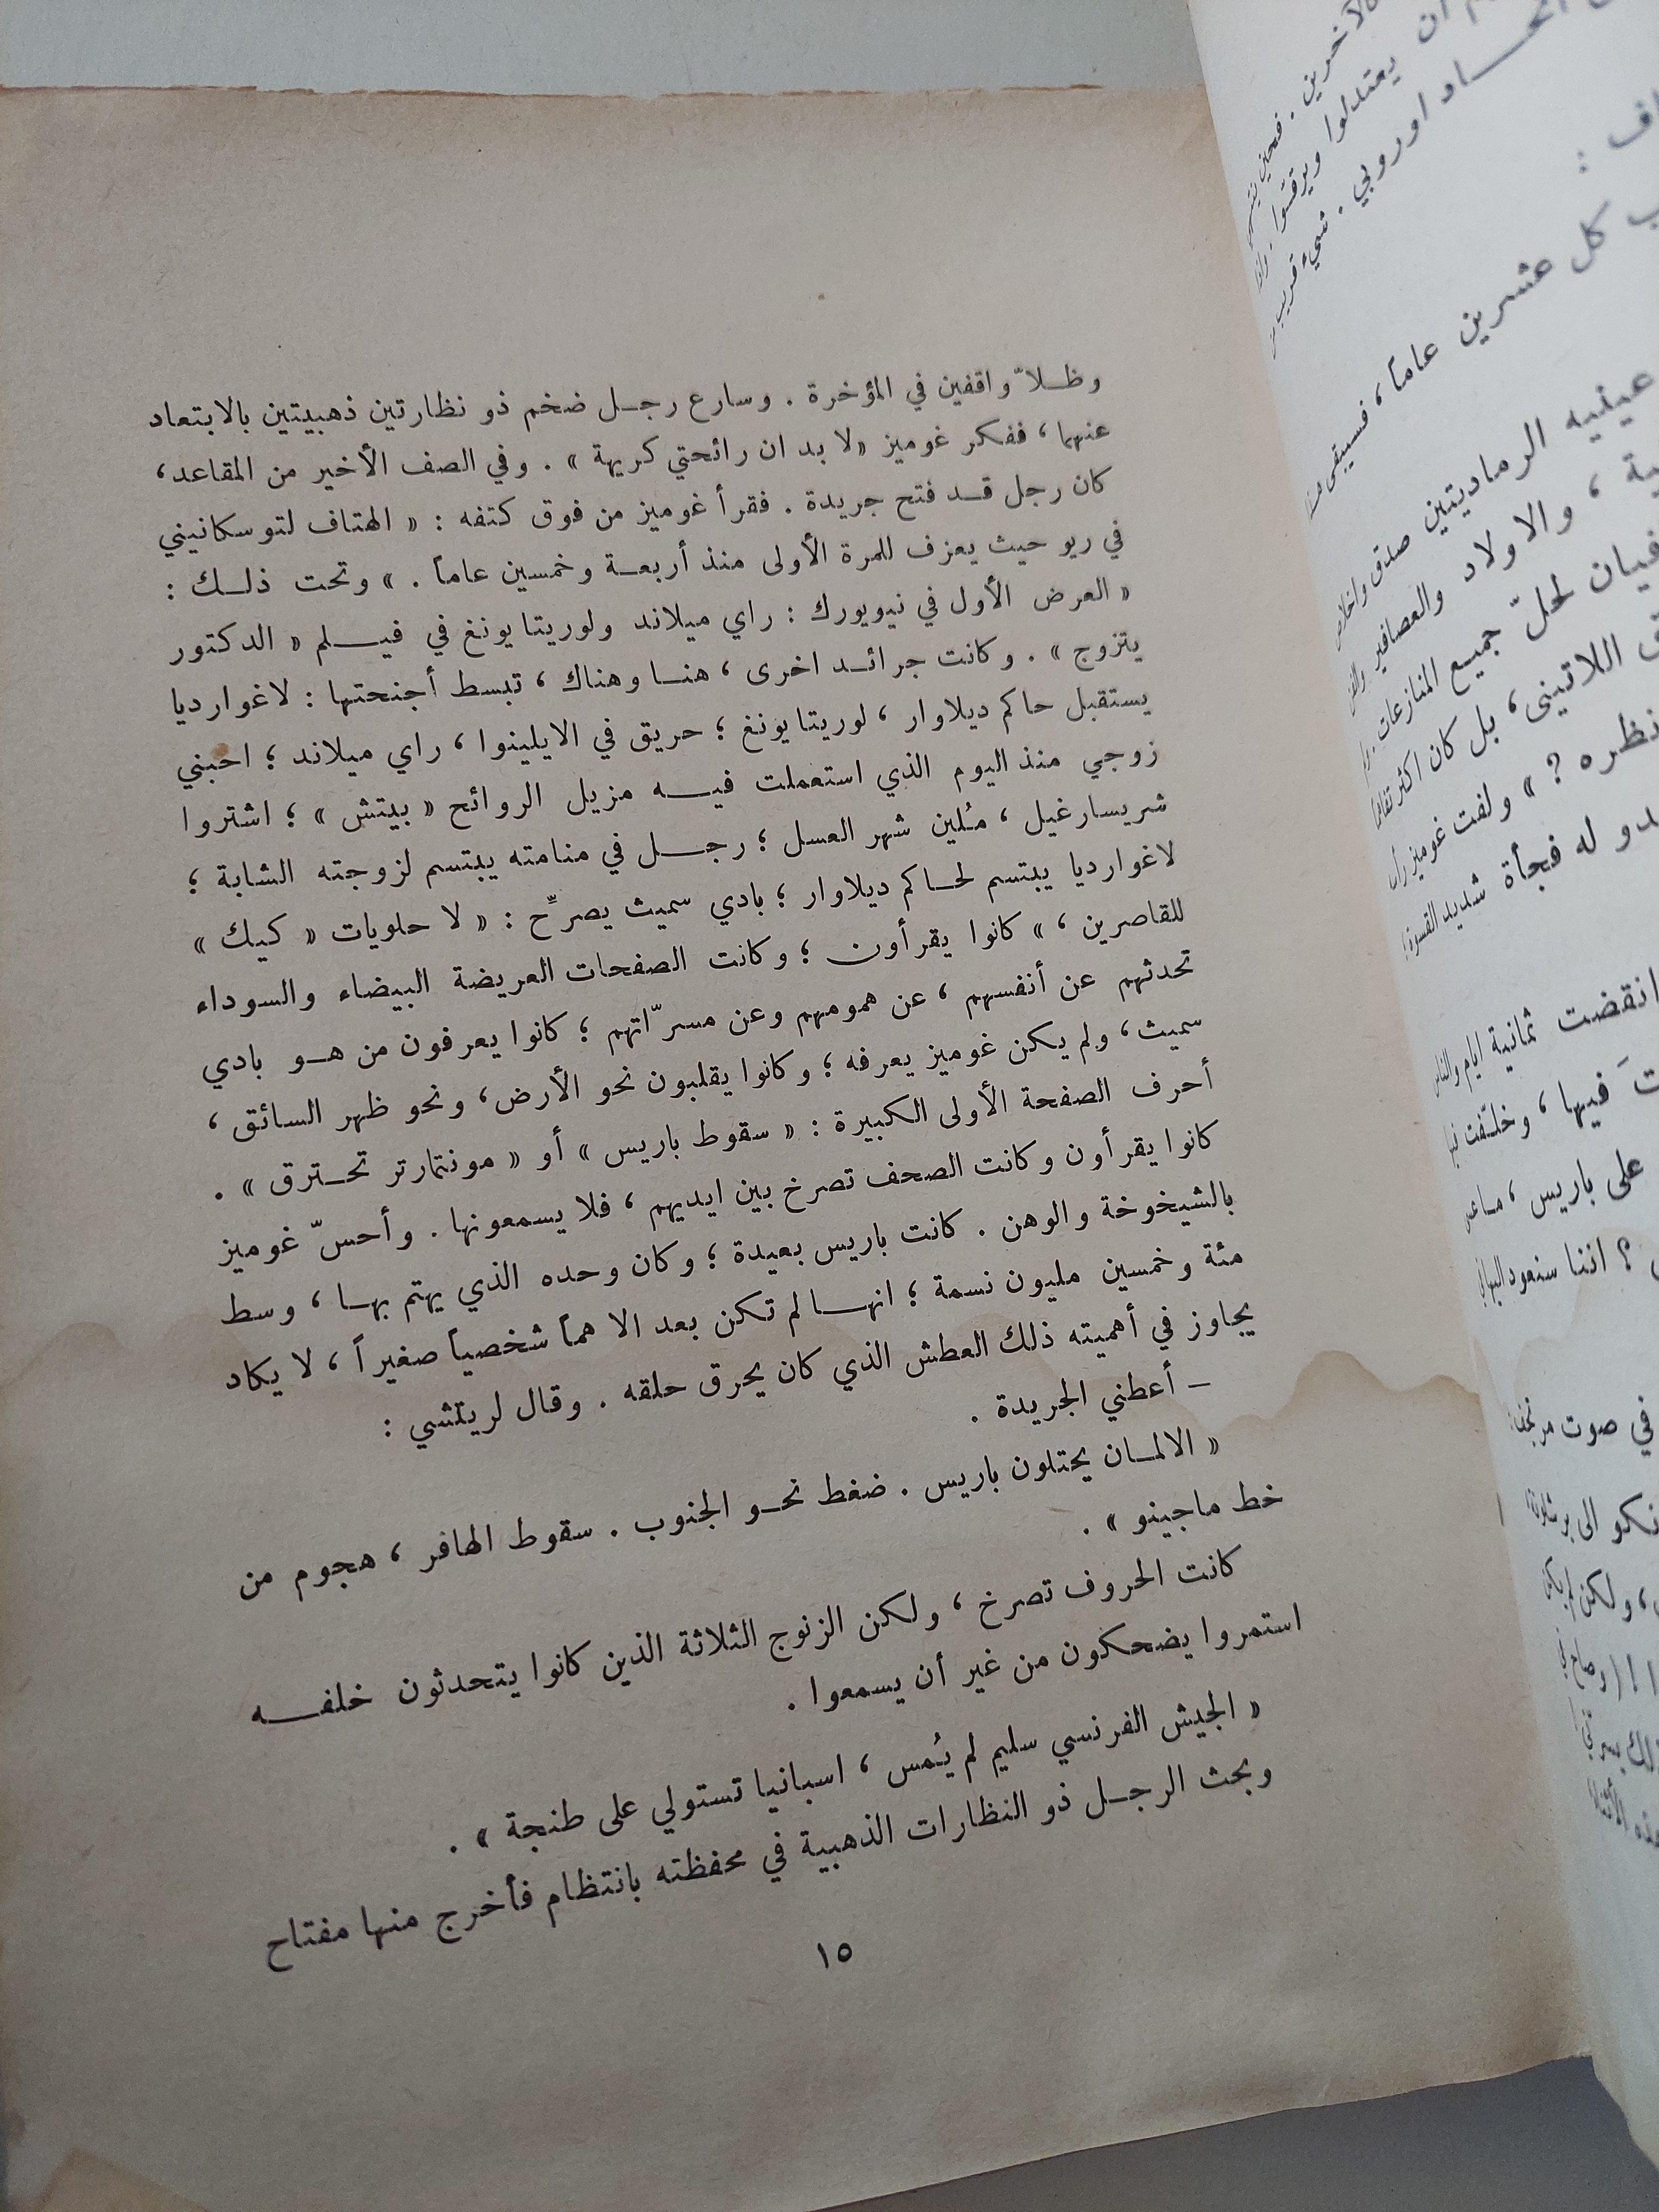 وظلاّ واقفين في المؤخرة . وسارع رجل ضخم ذو نظارتين ذهبيتين بالابتعاد
عنهما ، ففكر غوميز « لا بد ان رائحتي كريهة » . وفي الصف الأخير من المقاعد ،
كان رجل قد فتح جريدة . فقرأ غوميز من فوق كتفه : « الهتاف لتوسكانيني
في ريو حيث يعزف للمرة الأولى منذ أربعة وخمسين عاماً . » وتحت ذلك :
« العرض الأول في نيويورك : راي ميلاند ولوريتا يونغ في فيلم « الدكتور
يتزوج » . وكانت جرائد اخرى ، هنا وهناك ، تبسط أجنحتها : لاغوارديا
يستقبل حاكم ديلاوار ، لوريتا يونغ ؛ حريق في الايلينوا ، راي ميلاند ؛ احبني
زوجي منذ اليوم الذي استعملت فيه مزيل الروائح « بيتش » ؛ اشتروا
شريسارغيل ، مُلين شهر العسل ؛ رجل في منامته يبتسم لزوجته الشابة ؛
لاغوارديا يبتسم لحاكم ديلاوار ؛ بادي سميث يصرّح : « لا حلويات « كيك »
للقاصرين ، » كانوا يقرأون ؛ وكانت الصفحات العريضة البيضاء والسوداء
تحدثهم عن أنفسهم ، عن همومهم وعن مسرّاتهم ؛ كانوا يعرفون من هو بادي
سميث ، ولم يكن غوميز يعرفه ؛ وكانوا يقلبون نحو الأرض ، ونحو ظهر السائق ،
أحرف الصفحة الأولى الكبيرة : « سقوط باريس » أو « مونتمارتر تحترق » .
كانوا يقرأون وكانت الصحف تصرخ بين ايديهم ، فلا يسمعونها . وأحسّ غوميز
بالشيخوخة والوهن . كانت باريس بعيدة ؛ وكان وحده الذي يهتم بها ، وسط
مئة وخمسين مليون نسمة ؛ انها لم تكن بعد الا هماً شخصياً صغيراً ، لا يكاد
يجاوز في أهميته ذلك العطش الذي كان يحرق حلقه . وقال لريتشي :
– أعطني الجريدة .
« الالمان يحتلون باريس . ضغط نحو الجنوب . سقوط الهافر ، هجوم من
خط ماجينو » .
كانت الحروف تصرخ ، ولكن الزنوج الثلاثة الذين كانوا يتحدثون خلفه
استمروا يضحكون من غير أن يسمعوا .
« الجيش الفرنسي سليم لم يُمس ، اسبانيا تستولي على طنجة » .
وبحث الرجل ذو النظارات الذهبية في محفظته بانتظام فأخرج منها مفتاح
١٥
ان يعتدلوا
اوروبي . شيء قريب
كل عشرين عاماً ، فسيبقى
عينيه الرماديتين صدق
، والاولاد والعصافير
لحلّ جميع المنازعات
اللاتيني ، بل كان اكثر
نظره ؟ » ولفت غوميز
له فجأة شديد القسوة
انقضت ثمانية ايام والناس
فيها ، وخلّفت
على باريس ،
؟ اننا سنعود
في صوت مرتجف
الى برشلونة
، ولكن لم يكن